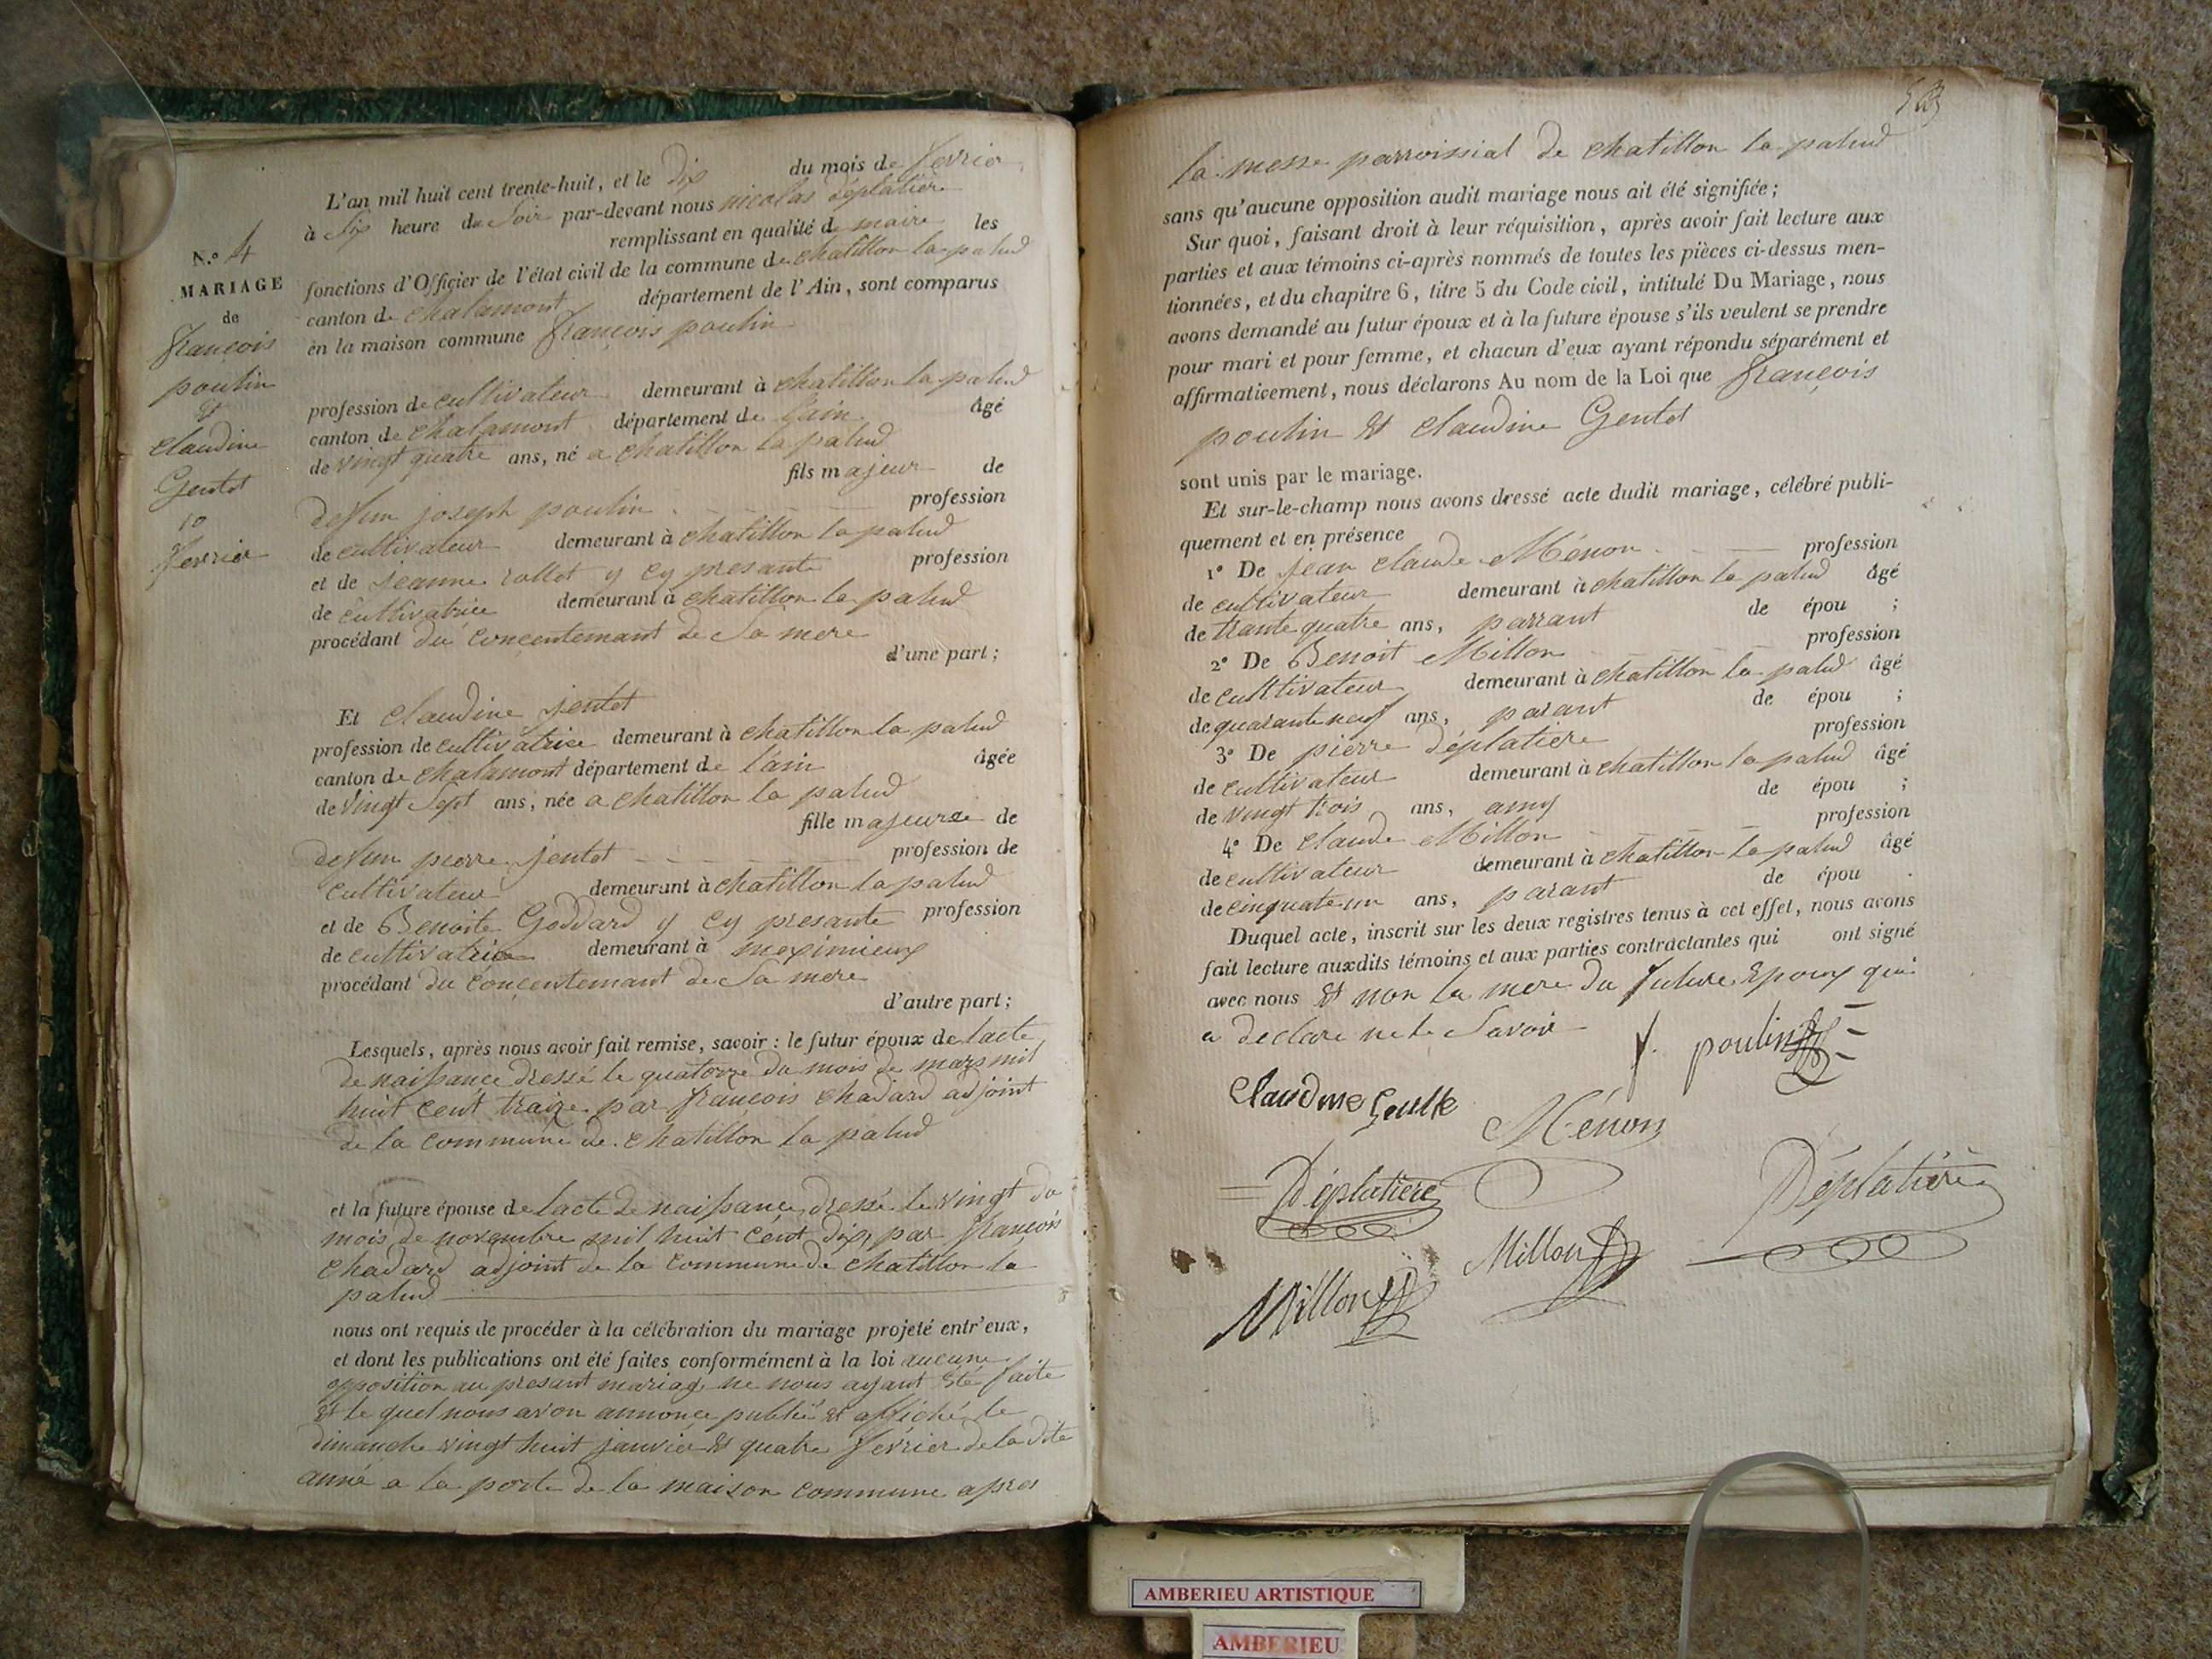 N.o 4
MARIAGE
de
françois
poulin
et
claudine
Gentet
10
fevrier
L'an mil huit cent trente-huit, et le dix du mois de fevrier
à six heure du soir par-devant nous nicolas déplatière
remplissant en qualité de maire les
fonctions d'Officier de l'état civil de la commune de chatillon la palud
canton de chalamont département de l'Ain, sont comparus
en la maison commune françois poulin
profession de cultivateur demeurant à chatillon la palud
canton de chalamont département de lain âgé
de vingt quatre ans, né a chatillon la palud
fils majeur de
defun joseph poulin profession
de cultivateur demeurant à chatillon la palud
et de jeanne rollet y cy presante profession
de cultivatrice demeurant à chatillon la palud
procédant du concentemant de sa mere
d'une part;
Et claudine jentet
profession de cultivatrice demeurant à chatillon la palud
canton de chalamont département de l'ain âgée
de vingt sept ans, née a chatillon la palud
fille majeure de
defun pierre jentet profession de
cultivateur demeurant à chatillon la palud
et de Benoite Goddard y cy presante profession
de cultivatrice demeurant à meximieux
procédant du concentemant de sa mere
d'autre part;
Lesquels, après nous avoir fait remise, savoir : le futur époux de lacte
de naissance dressé le quatorze du mois de mars mil
huit cent traize par françois chadard adjoint
de la commune de chatillon la palud
et la future épouse de lacte de naissance dressé le vingt du
mois de novembre mil huit cent dix, par françois
chadard adjoint de la commune de chatillon la
palud
nous ont requis de procéder à la célébration du mariage projeté entr'eux,
et dont les publications ont été faites conformément à la loi aucune
opposition au presant mariage ne nous ayant été faite
et le quel nous avon annonce publié et affiché le
dimanche vingt huit janvier et quatre fevrier de la dite
anné a la porte de la maison commune apres
la messe parroissial de chatillon la palud
sans qu'aucune opposition audit mariage nous ait été signifiée;
Sur quoi, faisant droit à leur réquisition, après avoir fait lecture aux
parties et aux témoins ci-après nommés de toutes les pièces ci-dessus men-
tionnées, et du chapitre 6, titre 5 du Code civil, intitulé Du Mariage, nous
avons demandé au futur époux et à la future épouse s'ils veulent se prendre
pour mari et pour femme, et chacun d'eux ayant répondu séparément et
affirmativement, nous déclarons Au nom de la Loi que françois
poulin et claudine Gentet
sont unis par le mariage.
Et sur-le-champ nous avons dressé acte dudit mariage, célébré publi-
quement et en présence
1° De jean claude Ménon profession
de cultivateur demeurant à chatillon la palud âgé
de trante quatre ans, parrant de épou ;
2° De Benoit Millon profession
de cultivateur demeurant à chatillon la palud âgé
de quarante neuf ans, parant de épou ;
3° De pierre déplatiere profession
de cultivateur demeurant à chatillon la palud âgé
de vingt trois ans, amy de épou ;
4° De claude Millon profession
de cultivateur demeurant à chatillon la palud âgé
de cinquate un ans, parant de épou .
Duquel acte, inscrit sur les deux registres tenus à cet effet, nous avons
fait lecture auxdits témoins et aux parties contractantes qui ont signé
avec nous et non la mere du future Epoux qui
a declare ne le savoir
f. poulin
Claudine
Ménon
Déplatiere
Déplatière
Millon
Millon
AMBERIEU ARTISTIQUE
AMBERIEU